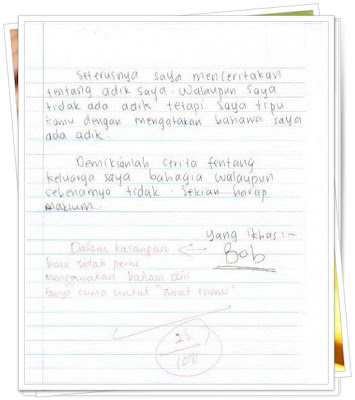 Seterusnya saya menceritakan
tentang adik saya. Walaupun saya
tidak ada adik tetapi saya tipu
kamu dengan mengatakan bahawa saya
ada adik.
Demikianlah cerita tentang
keluarga saya bahagia walaupun
sebenarnya tidak. Sekian harap
maklum.
Yang ikhas:-
Bob
Dalam karangan
biasa tidak perlu
menggunakan bahasa diri
cuma untuk "surat rasmi"
100